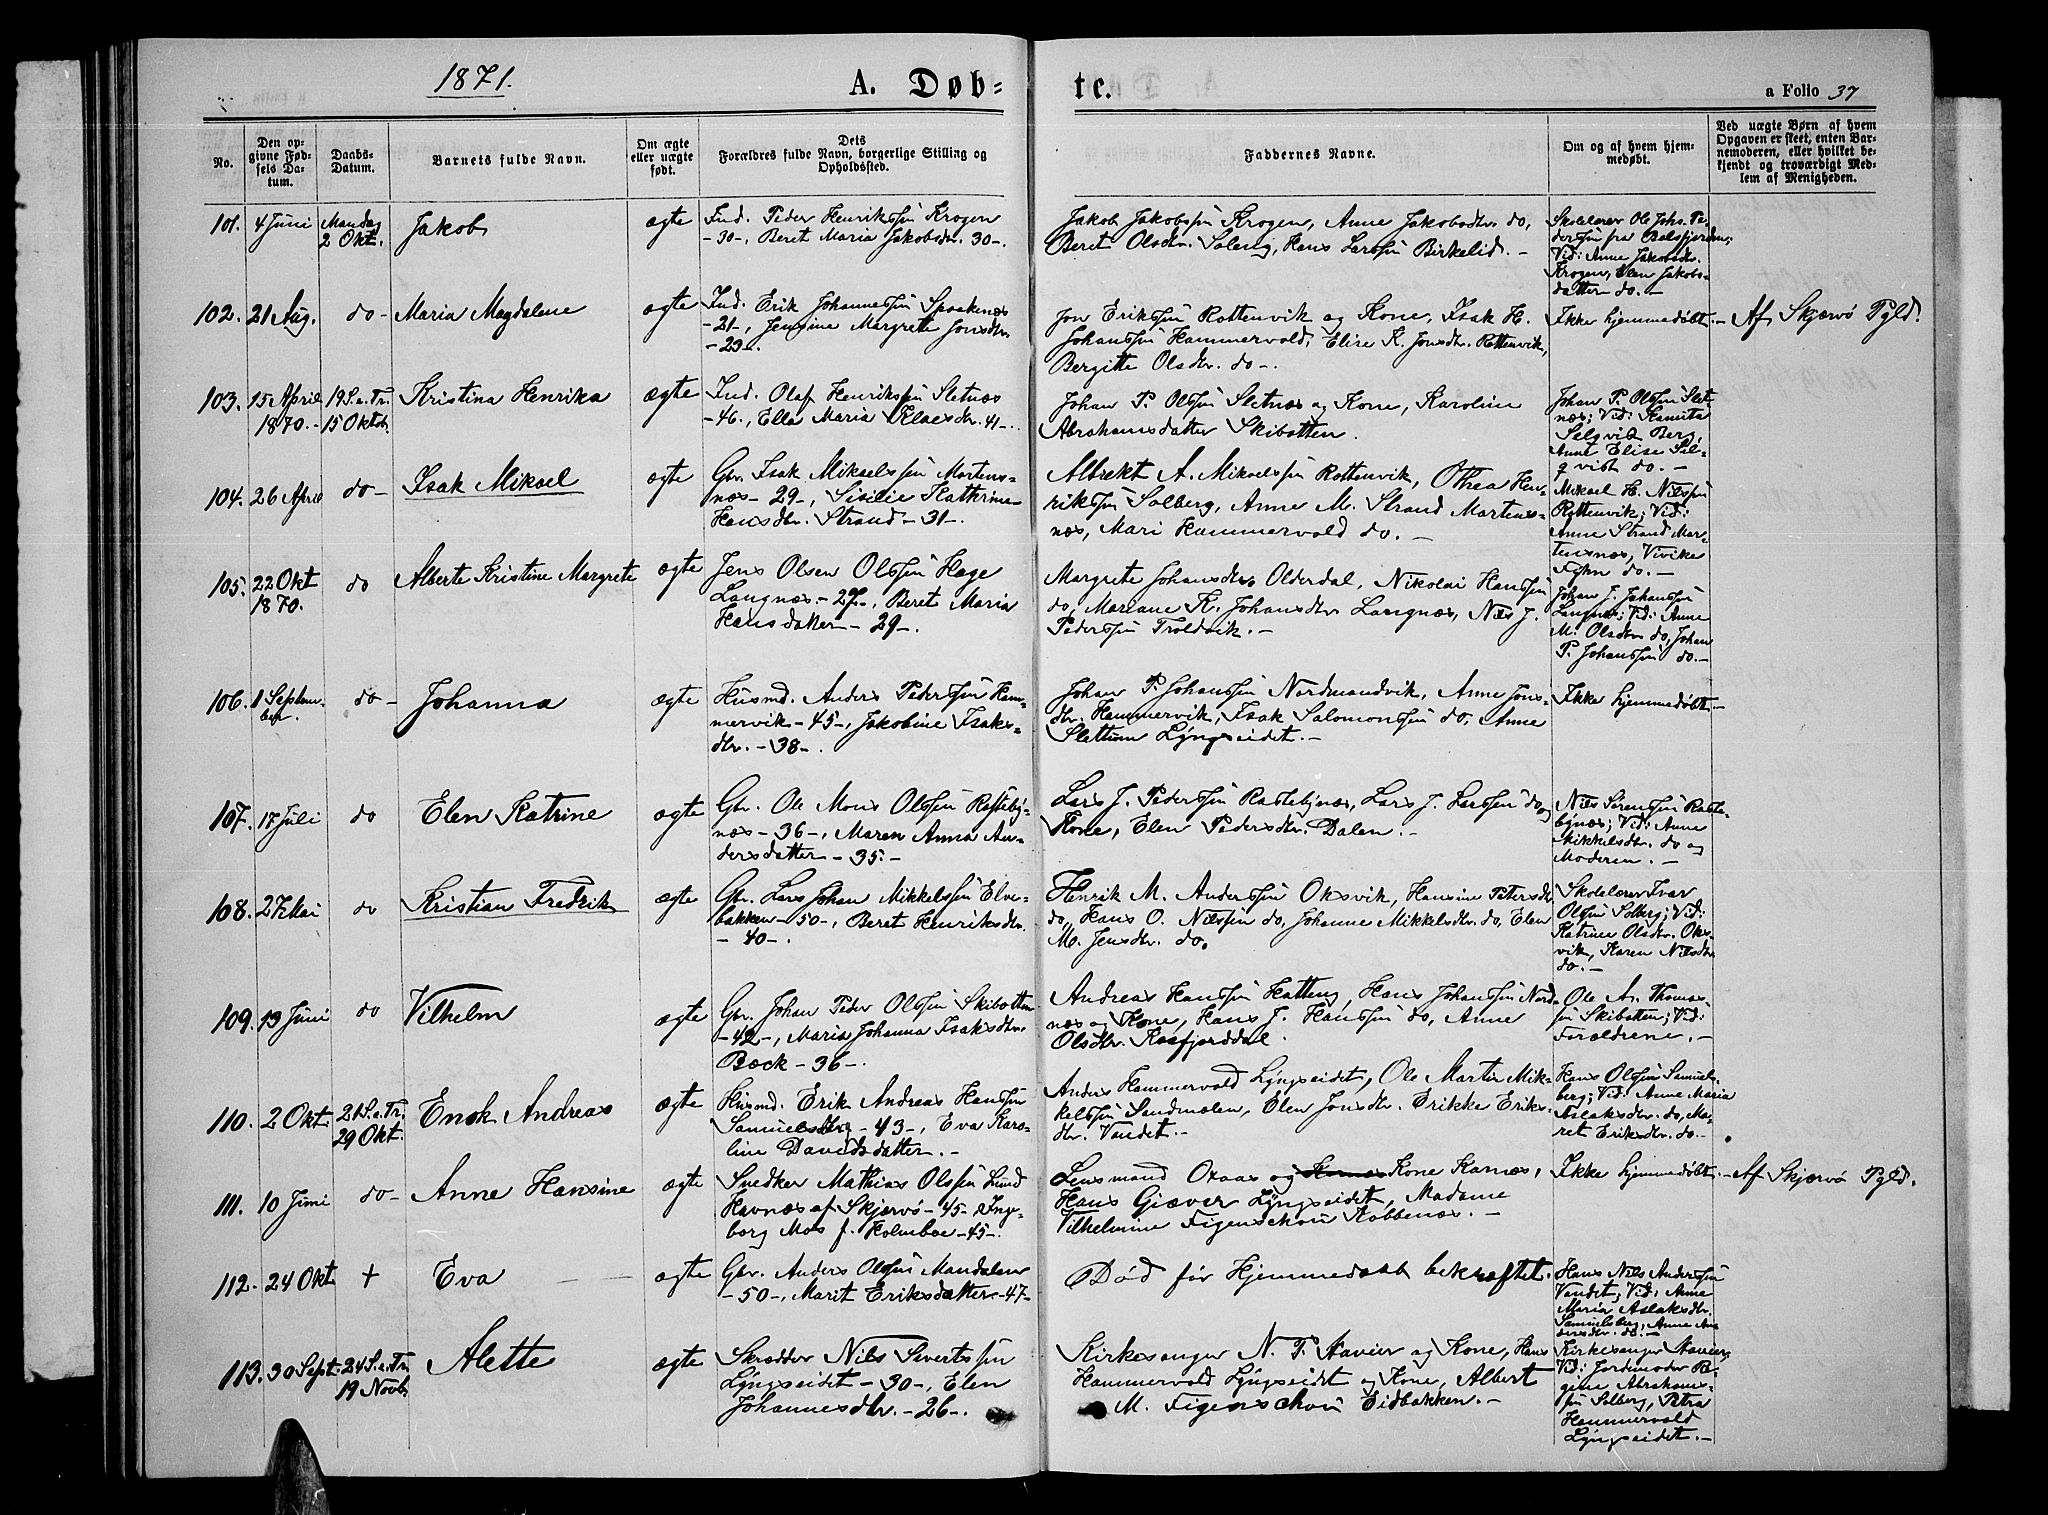 1871.
A. Døb=
te.
a Folio 37
No.
Den op-
givne Fød-
sels Da-
tum.
Daabs-
Datum.
Barnets fulde Navn.
Om ægte
eller uægte
født.
Dets
Forældres fulde Navn, borgerlige Stilling og
Opholdssted.
Faddernes Navne.
Om og af hvem hjem-
medøbt.
Ved uægte Børn af hvem
Opgaven er skeet, enten Bar-
nemoderen, eller hvilket be-
kjendt og troværdigt Med-
lem af Menigheden.
101. 4 Juni
Mandag
2 Okt.
Jakob
ægte
Ind. Peder Henrikssøn Krogen
-30-, Beret Maria Jakobsdtr. 30-.
Jakob Jakobssøn Krogen, Anne Jakobsdtr. do,
Beret Olsdtr. Soleng, Hans Larssøn Birkelid.-
Skolelærer Ole Johs. Pe-
derssøn fra Balsfjorden;
Vid: Anne Jakobsdtr.
Krogen, Elen Jakobs-
datter do.-
102. 21 Aug.
do-
Maria Magdalene
ægte
Ind. Erik Johannessøn Spaaknæs
-21-, Jensine Margrete Jonsdtr.
-23-.
Jon Erikssøn Rottenvik og Kone, Isak H.
Johanssøn Hammervold, Elise K. Jonsdtr. Rottenvik,
Bergitte Olsdtr. do-.
Ikke hjemmedøbt.-
Af Skjærvø Pgld.
103. 15 April
1870.-
19 S. e. Tr.
15 Oktob.
Kristina Henrika
ægte
Ind. Olaf Henrikssøn Sletnæs
-46-, Ella Maria Klaesdtr. 41-.
Johan P. Olssøn Sletnæs og Kone, Karoline
Abrahamsdatter Skibotten.
Johan P. Olssøn Slet-
næs; Vid:
Berg,
Anne Elise Sel-
qvist do.-
104. 26 April
do-
Isak Mikael
ægte
Gbr. Isak Mikaelssøn Martens-
næs- 29-, Sisilie Kathrina
Hansdtr. Strand- 31-.
Albrekt A. Mikaelssøn Rottenvik, Othea Hen-
rikssøn Solberg, Anne M. Strand Martens-
næs, Mari Hammervold do.-
Mikael H. Nilssøn
Rottenvik; Vid:
Anne Strand Mar-
tensnæs, Vivike
do.-
105. 22 Okt
1870.
do
Alberte Kristine Margrete
ægte
Jens Olsen Olssøn Hage
Langnæs- 27-, Beret Maria
Hansdatter- 29-.
Margrete Johansdtr. Olderdal, Nikolai Hanssøn
do, Mariane K. Johansdtr Langnæs, Nils J.
Pederssøn Troldvik.-
Johan J. Johanssøn
Langnæs; Vid: Anne
M. Olsdtr do, Johan
P. Johanssøn do.-
106. 1 Septem-
ber.
do-
Johanna
ægte
Husmd. Anders Pederssøn Ham-
nervik- 45-, Jakobine Isaks-
dtr.- 38-.
Johan P. Johanssøn Nordmandvik, Anne Jons-
dtr. Hammervik, Isak Salomonssøn do, Anne
Slettum Lyngseidet.-
Ikke hjemmedøbt.-
107. 17 Juli
do
Elen Katrine
ægte
Gbr. Ole Mons Olssøn Rasteby-
næs- 36-, Maren Anna An-
dersdatter- 35-
Lars J. Pederssøn Rastebynæs, Lars J. Larssøn do og
Kone, Elen Pedersdtr. Dalen.-
Nils Sørenssøn Raste-
bynæs; Vid: Anne
Mikkelsdtr. do og
Moderen.-
108. 27 Mai
do
Kristian Fredrik
ægte
Gbr. Lars Johan Mikkelssøn Elve-
bakken- 50-, Beret Henriksdtr.
-40-.
Henrik M. Anderssøn Oksvik, Hansine Petersdtr
do, Hans O. Nilssøn do, Johanne Mikkelsdtr. do, Elen
M. Jensdtr. do.
Skolelærer Ivar
Olssøn Solberg; Vid:
Katrine Olsdtr. Oks-
vik, Karen Nilsdtr
do.-
109. 13 Juni
do
Vilhelm
ægte
Gbr. Johan Peder Olssøn Skibotten
-42-, Maria Johanna Isaksdtr.
Beck- 36-.
Andreas Hanssøn Hatteng, Hans Johanssøn Nord-
næs og Kone, Hans J. Hanssøn do, Anne
Olsdtr. Kaafjorddal.
Ole A. Thomas-
søn Skibotten; Vid:
Forældrene.-
110. 2 Okt.
21 S. e. Tr.
29 Okt.
Enok Andreas
ægte
Husmd. Erik Andreas Hanssøn
Samuelsberg- 43-, Eva Karo-
line Davidsdatter.-
Anders Hammervold Lyngseidet, Ole Martin Mik-
kelssøn Sandmælen, Elen Jonsdtr. Erikke Eriks-
dtr. Vandet.-
Hans Olssøn Samuels-
berg; Vid: Anne Maria
Aslaksdtr. do, Ma-
ret Eriksdtr. do.-
111. 10 Juni
do-
Anne Hansine
ægte
Snedker Mathias Olssøn Lund
Havnæs af Skjærvø- 45- & Inge-
borg Mos f. Holmboe- 45-.
Lensmand Oxaas og Kone Karnæs,
Hans Giæver Lyngseidet, Madame
Vilhelmine Figenschou Kobbenæs.-
Ikke hjemmedøbt.-
Af Skjærvø Pgld.
112. 24 Okt
+
Eva
ægte
Gbr. Anders Olssøn Mandalen
-50-, Marit Eriksdatter- 47-
Død før Hjemmedaab bekræftet.
Hans Nils Anderssøn
Vandet; Vid: Anne
Maria Aslaksdtr.
Samuelsberg, Anne An-
dersdtr. do.-
113. 30 Sept.
24 S. e. Tr.
19 Novb.
Alette
ægte
Skrædder Nils Sivertssøn
Lyngseidet- 30-, Elen
Johannesdtr.- 26-.
Kirkesanger N. P. Xavier og Kone, Hans
Hammervold Lyngseidet og Kone, Albert
M. Figenschou Eidbakken.-
Kirkesanger Xavier,
Vid: Jordemoder Re-
gine Abrahams-
søn Solberg, Petra
Hammervold
Lyngseidet.-